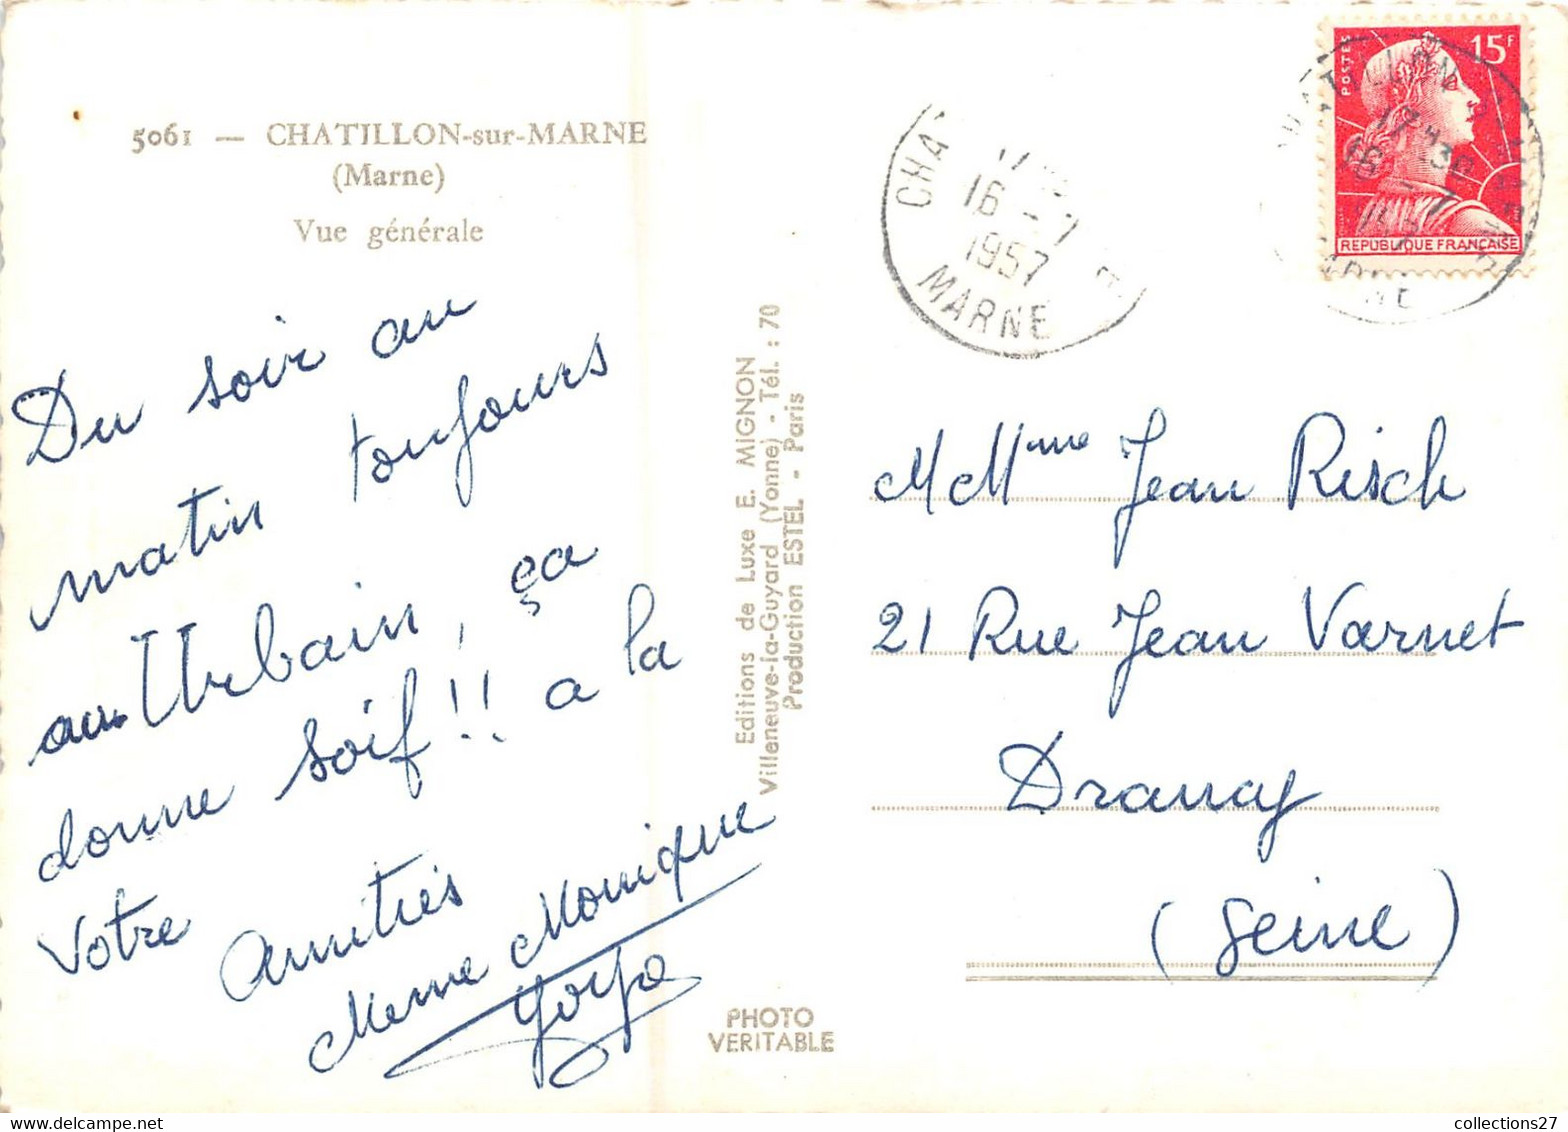 5061 — CHATILLON-sur-MARNE
(Marne)
Vue générale
Du soir au
matin toujours
au Urbain, ça
donne soif !! a la
Votre
Amitiés
Meme Monique
Yoyo
Editions de Luxe E. MIGNON
Villeneuve-la-Guyard (Yonne) - Tél. : 70
Production ESTEL - Paris
PHOTO
VERITABLE
CHA
16 - 7
1957
MARNE
POSTES
15F
REPUBLIQUE FRANÇAISE
M Mme Jean Risch
21 Rue Jean Varnet
Drancy
(Seine)
collections27